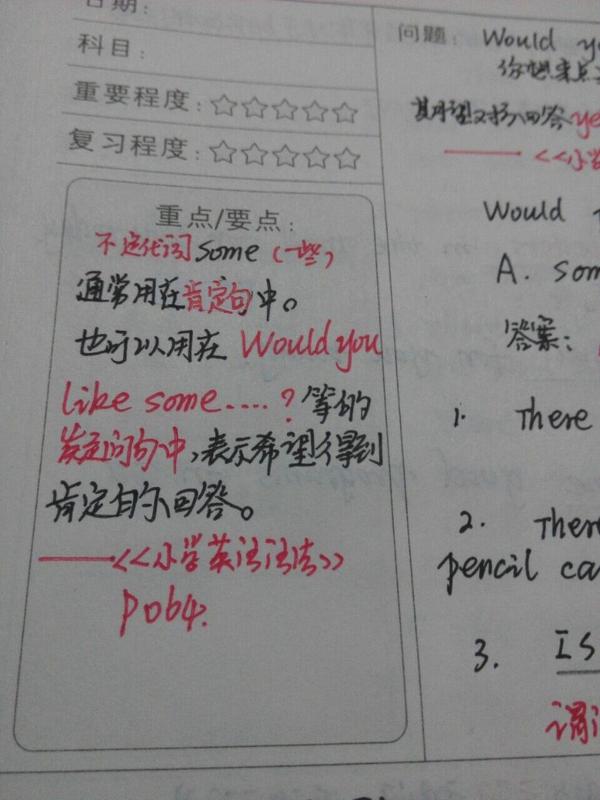 日期:
科目:
重要程度:☆☆☆☆☆
复习程度:☆☆☆☆☆
重点/要点:
不定代词some(一些)
通常用在肯定句中。
也可以用在 Would you
like some....?等的
疑问句中,表示希望得到
肯定的回答。
——<<小学英语语法>>
P064.
问题: Would
你想来点
其期望对方回答 ye
——<<小学
Would
A. som
答案:
1. There
2. There
pencil ca
3. Is
谓语